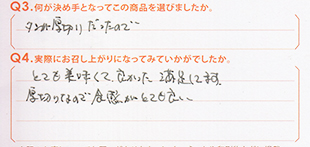 Q3.何が決め手となってこの商品を選びましたか。
タンが厚切りだったので
Q4.実際にお召し上がりになってみていかがでしたか。
とても美味しくて良かった 満足してます。
厚切りなので食感がとても良い